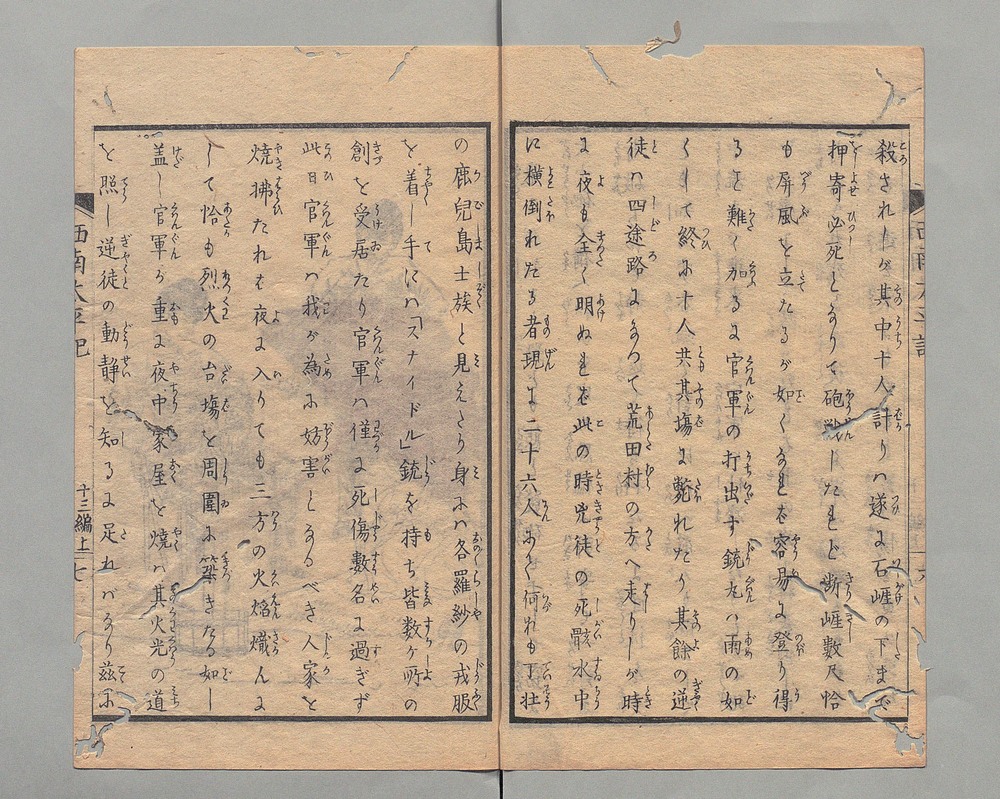 殺されしが其中十人計りハ遂に石崕の下まで
押寄必死となりて砲戦したれど断崕數尺恰
も屏風を立たるが如くなれバ容易に登り得
るを難く加るに官軍の打出す銃丸ハ雨の如
くにて終に十人共其塲に斃れたり其餘の逆
徒ハ四途路になつて荒田村の方へ走りしが時
に夜も全く明ぬれバ此の時兇徒の死骸水中
に横倒れたる者現に二十六人にて何れも丁壮
の鹿兒島士族と見えたり身にハ各羅紗の戎服
を着し手にハ「スナイドル」銃を持ち皆数ヶ所の
創を受居たり官軍ハ僅に死傷數名に過ぎず
此日官軍ハ我が為に妨害となるべき人家を
焼拂たれバ夜に入りても三方の火焔熾んに
して恰も烈火の台塲を周圍に築きたる如し
盖し官軍が重に夜中家屋を焼ハ其火光の道
を照し逆徒の動静を知るに足れバなり茲に
西南太平記
十三編上
七